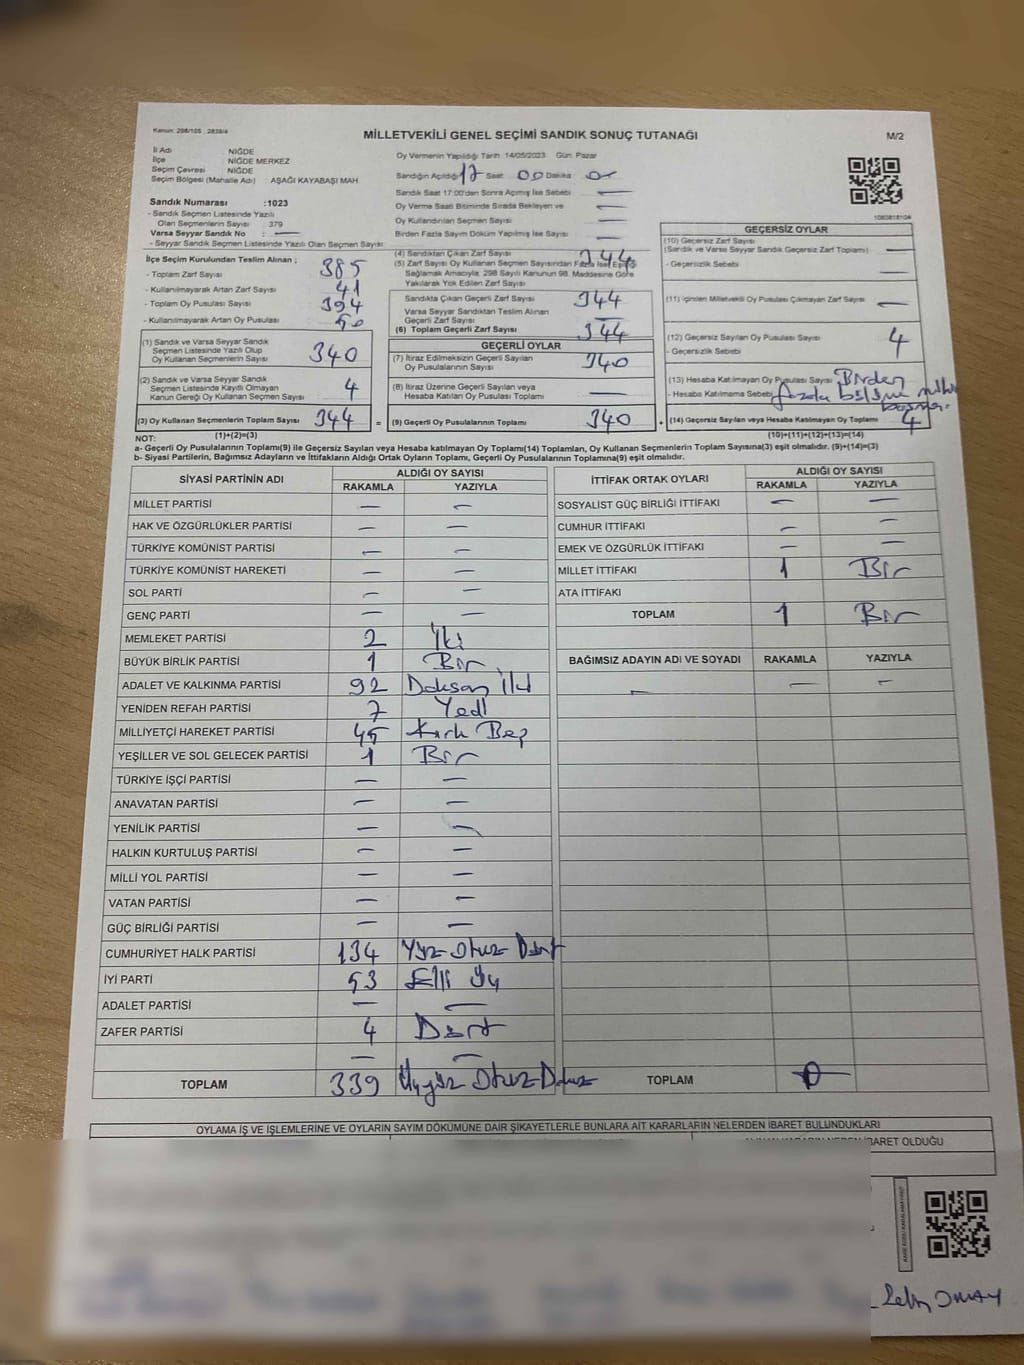 Kanun: 298/105 , 2839/4
MİLLETVEKİLİ GENEL SEÇİMİ SANDIK SONUÇ TUTANAĞI
M/2
İl Adı NİĞDE
İlçe NİĞDE MERKEZ
Seçim Çevresi NİĞDE
Seçim Bölgesi (Mahalle Adı) : AŞAĞI KAYABAŞI MAH.
Sandık Numarası :1023
- Sandık Seçmen Listesinde Yazılı
Olan Seçmenlerin Sayısı : 379
Varsa Seyyar Sandık No : —
- Seyyar Sandık Seçmen Listesinde Yazılı Olan Seçmen Sayısı:
Oy Vermenin Yapıldığı Tarih: 14/05/2023 Gün: Pazar
Sandığın Açıldığı 17 Saat 00 Dakika
Sandık Saat 17:00'den Sonra Açılmış İse Sebebi —
Oy Verme Saati Bitiminde Sırada Bekleyen ve —
Oy Kullandırılan Seçmen Sayısı —
Birden Fazla Sayım Döküm Yapılmış İse Sayısı —
İlçe Seçim Kurulundan Teslim Alınan ;
- Toplam Zarf Sayısı 385
- Kullanılmayarak Artan Zarf Sayısı 41
- Toplam Oy Pusulası Sayısı 394
- Kullanılmayarak Artan Oy Pusulası 50
(1) Sandık ve Varsa Seyyar Sandık
Seçmen Listesinde Yazılı Olup
Oy Kullanan Seçmenlerin Sayısı 340
(2) Sandık ve Varsa Seyyar Sandık
Seçmen Listesinde Kayıtlı Olmayan
Kanun Gereği Oy Kullanan Seçmen Sayısı 4
(3) Oy Kullanan Seçmenlerin Toplam Sayısı 344
(1)+(2)=(3)
(4) Sandıktan Çıkan Zarf Sayısı 344
(5) Zarf Sayısı Oy Kullanan Seçmen Sayısından Fazla İse, Eşitliği
Sağlamak Amacıyla; 298 Sayılı Kanunun 98. Maddesine Göre
Yakılarak Yok Edilen Zarf Sayısı
Sandıkta Çıkan Geçerli Zarf Sayısı 344
Varsa Seyyar Sandıktan Teslim Alınan
Geçerli Zarf Sayısı —
(6) Toplam Geçerli Zarf Sayısı 344
GEÇERLİ OYLAR
(7) İtiraz Edilmeksizin Geçerli Sayılan
Oy Pusulalarının Sayısı 340
(8) İtiraz Üzerine Geçerli Sayılan veya
Hesaba Katılan Oy Pusulası Toplamı —
= (9) Geçerli Oy Pusulalarının Toplamı 340
1080818104
GEÇERSİZ OYLAR
(10) Geçersiz Zarf Sayısı
(Sandık ve Varsa Seyyar Sandık Geçersiz Zarf Toplamı) —
- Geçersizlik Sebebi —
(11) İçinden Milletvekili Oy Pusulası Çıkmayan Zarf Sayısı —
(12) Geçersiz Sayılan Oy Pusulası Sayısı 4
- Geçersizlik Sebebi
(13) Hesaba Katılmayan Oy Pusulası Sayısı Birden
- Hesaba Katılmama Sebebi fazla bölüme mühür
+ (14) Geçersiz Sayılan veya Hesaba Katılmayan Oy Toplamı 4
(10)+(11)+(12)+(13)=(14)
NOT:
a- Geçerli Oy Pusulalarının Toplamı(9) ile Geçersiz Sayılan veya Hesaba katılmayan Oy Toplamı(14) Toplamları, Oy Kullanan Seçmenlerin Toplam Sayısına(3) eşit olmalıdır. (9)+(14)=(3)
b- Siyasi Partilerin, Bağımsız Adayların ve İttifakların Aldığı Ortak Oyların Toplamı, Geçerli Oy Pusulalarının Toplamına(9) eşit olmalıdır.
SİYASİ PARTİNİN ADI ALDIĞI OY SAYISI
RAKAMLA YAZIYLA
MİLLET PARTİSİ — —
HAK VE ÖZGÜRLÜKLER PARTİSİ — —
TÜRKİYE KOMÜNİST PARTİSİ — —
TÜRKİYE KOMÜNİST HAREKETİ — —
SOL PARTİ — —
GENÇ PARTİ — —
MEMLEKET PARTİSİ 2 İki
BÜYÜK BİRLİK PARTİSİ 1 Bir
ADALET VE KALKINMA PARTİSİ 92 Doksan İki
YENİDEN REFAH PARTİSİ 7 Yedi
MİLLİYETÇİ HAREKET PARTİSİ 45 Kırk Beş
YEŞİLLER VE SOL GELECEK PARTİSİ 1 Bir
TÜRKİYE İŞÇİ PARTİSİ — —
ANAVATAN PARTİSİ — —
YENİLİK PARTİSİ — —
HALKIN KURTULUŞ PARTİSİ — —
MİLLİ YOL PARTİSİ — —
VATAN PARTİSİ — —
GÜÇ BİRLİĞİ PARTİSİ — —
CUMHURİYET HALK PARTİSİ 134 Yüz Otuz Dört
İYİ PARTİ 53 Elli Üç
ADALET PARTİSİ — —
ZAFER PARTİSİ 4 Dört
— —
TOPLAM 339 Üçyüz Otuz Dokuz
İTTİFAK ORTAK OYLARI ALDIĞI OY SAYISI
RAKAMLA YAZIYLA
SOSYALİST GÜÇ BİRLİĞİ İTTİFAKI — —
CUMHUR İTTİFAKI — —
EMEK VE ÖZGÜRLÜK İTTİFAKI — —
MİLLET İTTİFAKI 1 Bir
ATA İTTİFAKI
TOPLAM 1 Bir
BAĞIMSIZ ADAYIN ADI VE SOYADI RAKAMLA YAZIYLA
— — —
TOPLAM 0
OYLAMA İŞ VE İŞLEMLERİNE VE OYLARIN SAYIM DÖKÜMÜNE DAİR ŞİKAYETLERLE BUNLARA AİT KARARLARIN NELERDEN İBARET BULUNDUKLARI
İBARET OLDUĞU